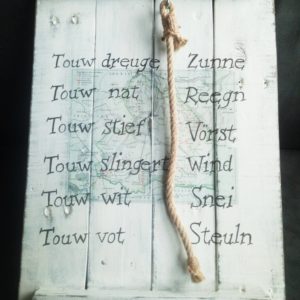 Touw dreuge Zunne
Touw nat Reegn
Touw stief Vörst
Touw slingert Wind
Touw wit Snei
Touw vot Steuln